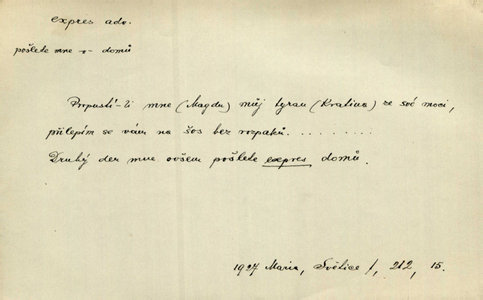 expres adv.
pošlete mne v domů
Propustí-li mne (Magdu) můj tyran (Kratina) ze své moci,
přilepím se vám na šos bez rozpaků. . . . . . . . .
Druhý den mne ovšem pošlete expres domů.
1927 Maria, Světice /, 212, 15.